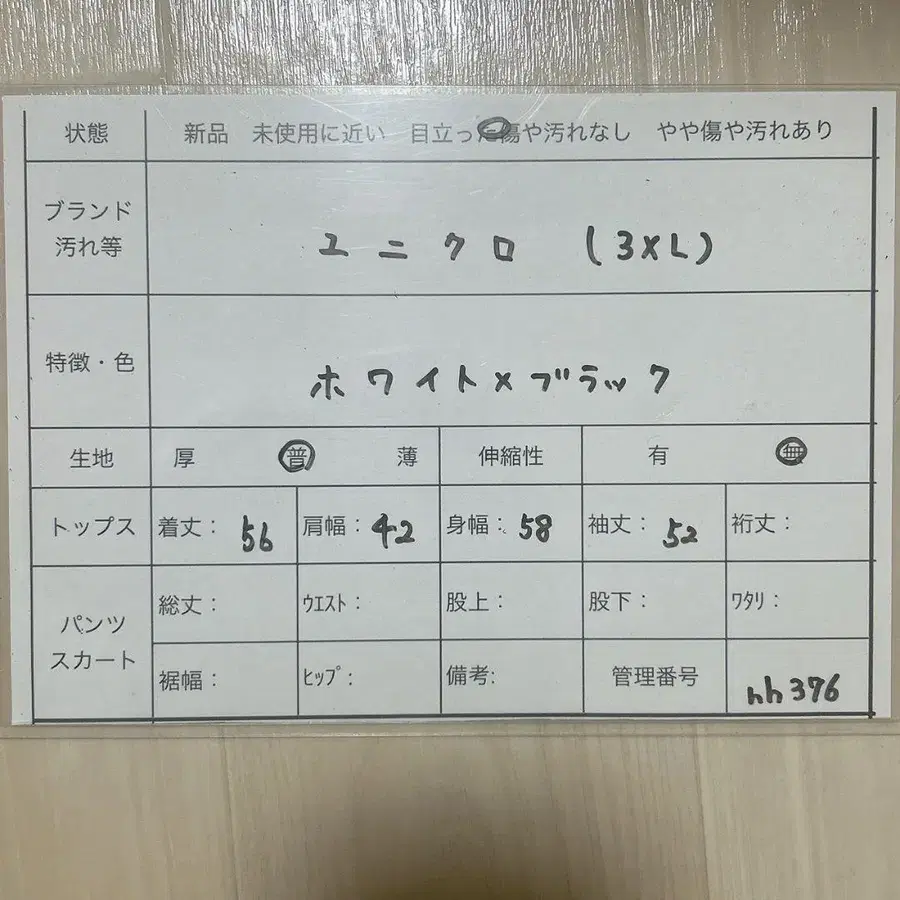 状態 新品 未使用に近い 目立った傷や汚れなし やや傷や汚れあり
ブランド
汚れ等
ユニクロ (3XL)
特徴・色 ホワイト×ブラック
生地 厚 普 薄 伸縮性 有 無
トップス 着丈: 56 肩幅: 42 身幅: 58 袖丈: 52 裄丈:
パンツ
スカート
総丈: ウエスト: 股上: 股下: ワタリ:
裾幅: ヒップ: 備考: 管理番号 hh376